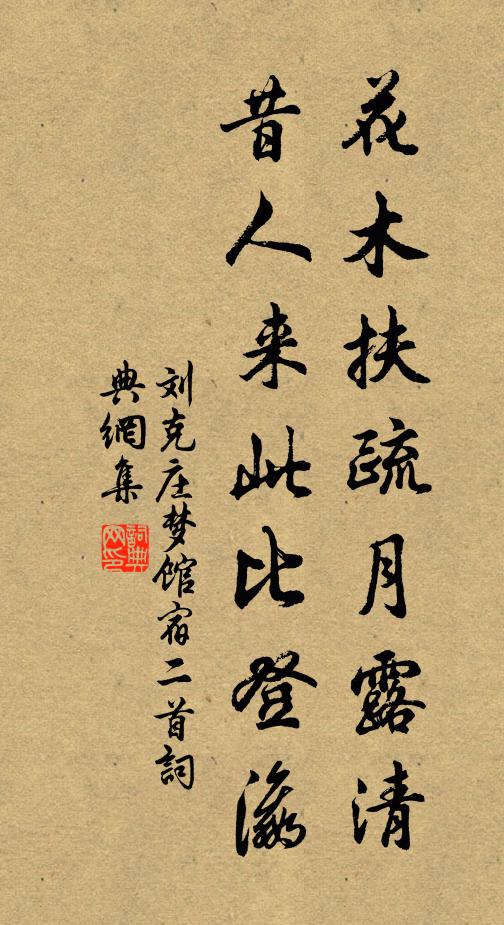 花木扶疏月露清
昔人来此比登瀛
刘克庄梦馆宿二首詞
典網集
詞典网印